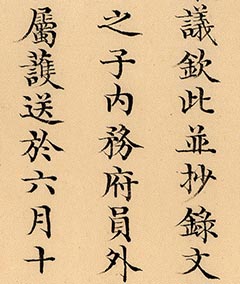 議欽此並抄錄文
之子內務府員外
屬護送於六月十